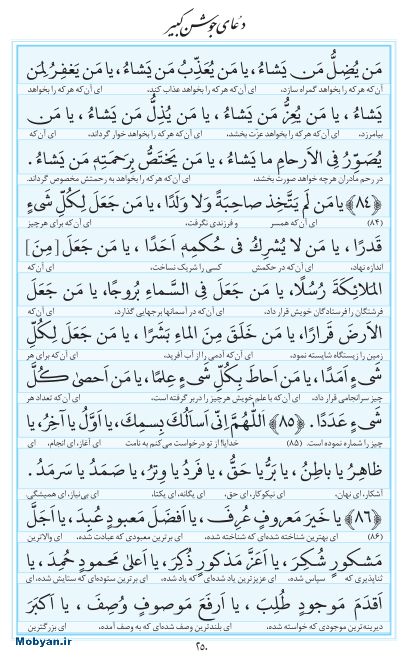 دعای جوشن کبیر
مَن يُضِلُّ مَن يَشاءُ، يا مَن يُعَذِّبُ مَن يَشاءُ، يا مَن يَغفِرُ لِمَن
آن‌که هر که را بخواهد گمراه سازد، ای آن‌که هر که را بخواهد عذاب کند، ای آن‌که هر که را بخواهد
يَشاءُ، يا مَن يُعِزُّ مَن يَشاءُ، يا مَن يُذِلُّ مَن يَشاءُ، يا مَن
بیامرزد، ای آن‌که هر که را بخواهد عزت بخشد، ای آن‌که هر که را بخواهد خوار گرداند، ای آن‌که
يُصَوِّرُ فِى الاَرحامِ ما يَشاءُ، يا مَن يَختَصُّ بِرَحمَتِهِ مَن يَشاءُ.
در رحم مادران هرچه خواهد صورت بخشد، ای آن‌که هر که را بخواهد به رحمتش مخصوص گرداند.
﴿٨٤﴾ يا مَن لَم يَتَّخِذ صاحِبَةً وَلا وَلَدًا، يا مَن جَعَلَ لِكُلِّ شَىءٍ
(۸۴) ای آن‌که همسر و فرزندی نگرفت، ای آن‌که برای هرچیز
قَدرًا، يا مَن لا يُشرِكُ فى حُكمِهِ اَحَدًا، يا مَن جَعَلَ [مِنَ]
اندازه نهاد، ای آن‌که در حکمش کسی را شریک نساخت، ای آن‌که
المَلائِكَةَ رُسُلًا، يا مَن جَعَلَ فِى السَّماءِ بُروجًا، يا مَن جَعَلَ
فرشتگان را فرستادگان خویش قرار داد، ای آن‌که در آسمانها برجهایی گذارد، ای آن‌که
الاَرضَ قَرارًا، يا مَن خَلَقَ مِنَ الماءِ بَشَرًا، يا مَن جَعَلَ لِكُلِّ
زمین را زیستگاه شایسته نمود، ای آن‌که آدمی را از آب آفرید، ای آن‌که برای هر
شَىءٍ اَمَدًا، يا مَن اَحاطَ بِكُلِّ شَىءٍ عِلمًا، يا مَن اَحصى كُلَّ
چیز سرانجامی قرار داد، ای آن‌که با علم خویش هرچیز را دربر گرفته است، ای آن‌که تعداد هر
شَىءٍ عَدَدًا. ﴿٨٥﴾ اَللّٰهُمَّ اِنّى اَسأَلُكَ بِسمِكَ، يا اَوَّلُ يا آخِرُ، يا
چیز را شماره نموده است. (۸۵) خدایا! از تو درخواست می‌کنم به نامت ای آغاز، ای انجام، ای
ظاهِرُ يا باطِنُ، يا بَرُّ يا حَقُّ، يا فَردُ يا وِترُ، يا صَمَدُ يا سَرمَدُ.
آشکار، ای نهان، ای نیکوکار، ای حق، ای یگانه، ای یکتا، ای بی‌نیاز، ای همیشگی.
﴿٨٦﴾ يا خَيرَ مَعروفٍ عُرِفَ، يا اَفضَلَ مَعبودٍ عُبِدَ، يا اَجَلَّ
(۸۶) ای بهترین شناخته شده‌ای که شناخته شده، ای برترین معبودی که عبادت شده، ای والاترین
مَشكورٍ شُكِرَ، يا اَعَزَّ مَذكورٍ ذُكِرَ، يا اَعلى مَحمودٍ حُمِدَ، يا
ثناپذیری که سپاس شده، ای عزیزترین یاد شده‌ای که یاد شده، ای برترین ستوده‌ای که ستایش شده، ای
اَقدَمَ مَوجودٍ طُلِبَ، يا اَرفَعَ مَوصوفٍ وُصِفَ، يا اَكبَرَ
دیرینه‌ترین موجودی که خواسته شده، ای بلندترین وصف شده‌ای که به وصف آمده، ای بزرگترین
۲۵۰
Mobyan.ir